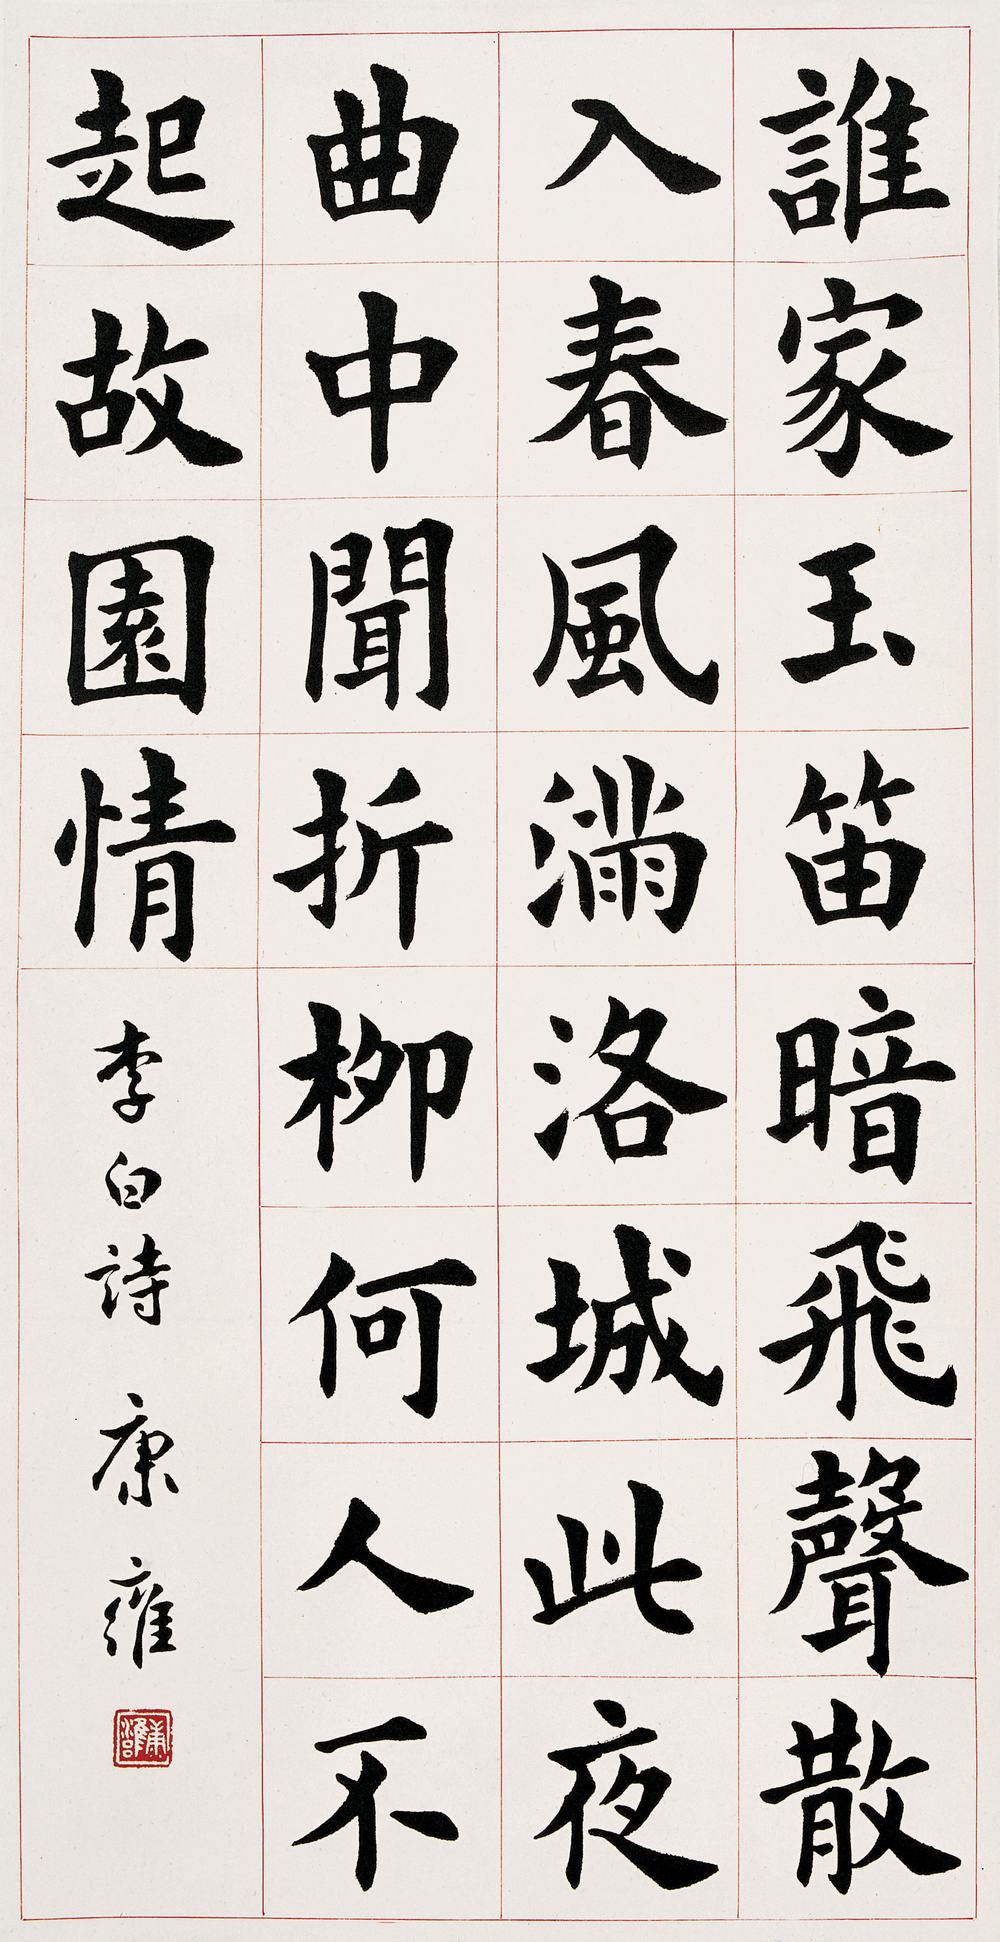 誰家玉笛暗飛聲散
入春風滿洛城此夜
曲中聞折柳何人不
起故園情
李白詩 康雍
康雍